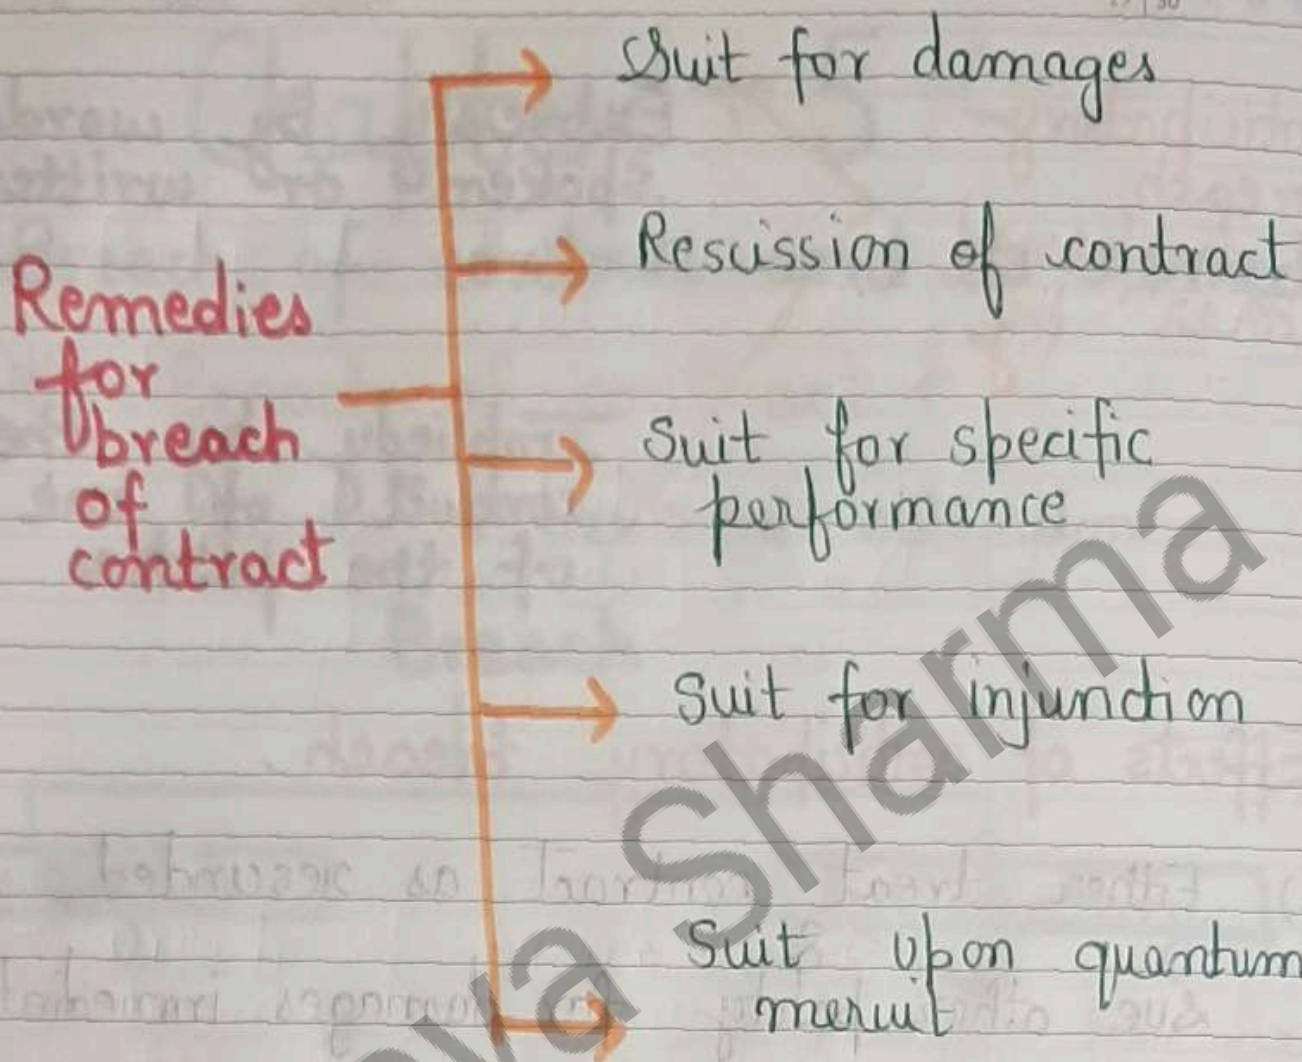 Remedies
for
breach
of
contract
Suit for damages
Rescission of contract
Suit for specific
performance
Suit for injunction
Suit upon quantum
meruit
Sharma